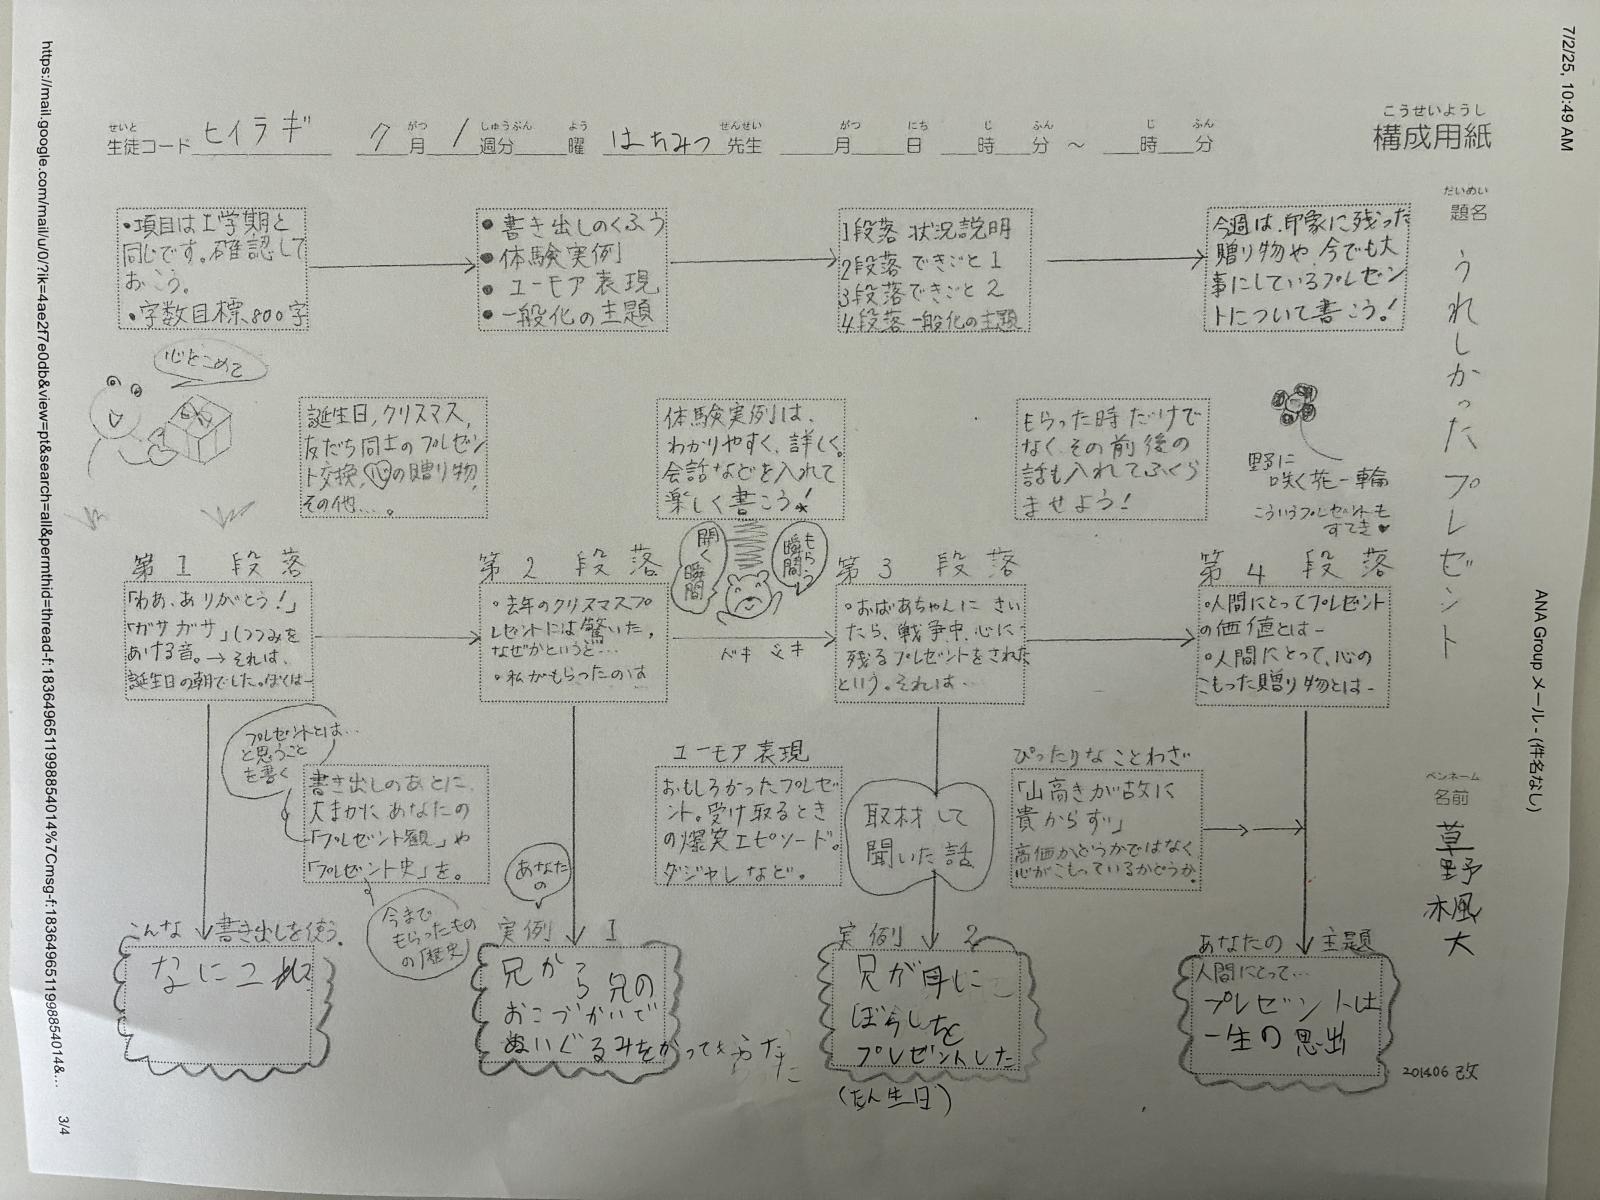 7/2/25, 10:49 AM
ANA Group メール - (件名なし)
こうせいようし
構成用紙
せいと
生徒コード ヒイラギ
がつ しゅうぶん よう せんせい
7月 1 週分 曜 はちみつ 先生
がつ にち じ ふん じ ふん
月 日 時 分 ～ 時 分
だいめい
題名
うれしかったプレゼント
ペンネーム
名前
草野
楓
大
・項目は1学期と
同じです。確認して
おこう。
・字数目標800字
●書き出しのくふう
●体験実例
●ユーモア表現
●一般化の主題
1段落 状況説明
2段落 できごと1
3段落 できごと2
4段落 一般化の主題
今週は、印象に残った
贈り物や、今でも大
事にしているプレゼン
トについて書こう！
心をこめて
誕生日、クリスマス、
友だち同士のプレゼン
ト交換、心の贈り物、
その他…。
体験実例は、
わかりやすく、詳しく。
会話などを入れて
楽しく書こう！
もらった時だけで
なく、その前後の
話も入れてふくら
ませよう！
野に
咲く花一輪
こういうプレゼントも
すてき♥
第1段落
「わあ、ありがとう！」
「ガサガサ」(つつみを
あける音。→それは、
誕生日の朝でした。ぼくは―
第2段落
・去年のクリスマスプ
レゼントには驚いた。
なぜかというと…
・私がもらったのは
開く瞬間
もらう瞬間
第3段落
・おばあちゃんにきい
たら、戦争中、心に
残るプレゼントをされた
という。それは…
第4段落
・人間にとってプレゼント
の価値とは―
・人間にとって、心の
こもった贈り物とは―
プレゼントとは…
と思うこと
を書く
書き出しのあとに、
大まかに、あなたの
「プレゼント観」や
「プレゼント史」を。
今まで
もらったもの
の「歴史」
ユーモア表現
おもしろかったプレゼ
ント。受け取るとき
の爆笑エピソード。
ダジャレなど。
取材して
聞いた話
ぴったりなことわざ
「山高きが故に
貴からず」
高価かどうかではなく
心がこもっているかどうか。
こんな書き出しを使う。
なにコれ
あなたの
実例 1
兄から兄の
おこづかいで
ぬいぐるみをかってもらった
実例 2
兄が母に
ぼうしを
プレゼントした
(たん生日)
あなたの主題
人間にとって…
プレゼントは
一生の思出
201406改
https://mail.google.com/mail/u/0/?ik=4ae2f7e0db&view=pt&search=all&permthid=thread-f:1836496511998854014%7Cmsg-f:1836496511998854014&…
3/4